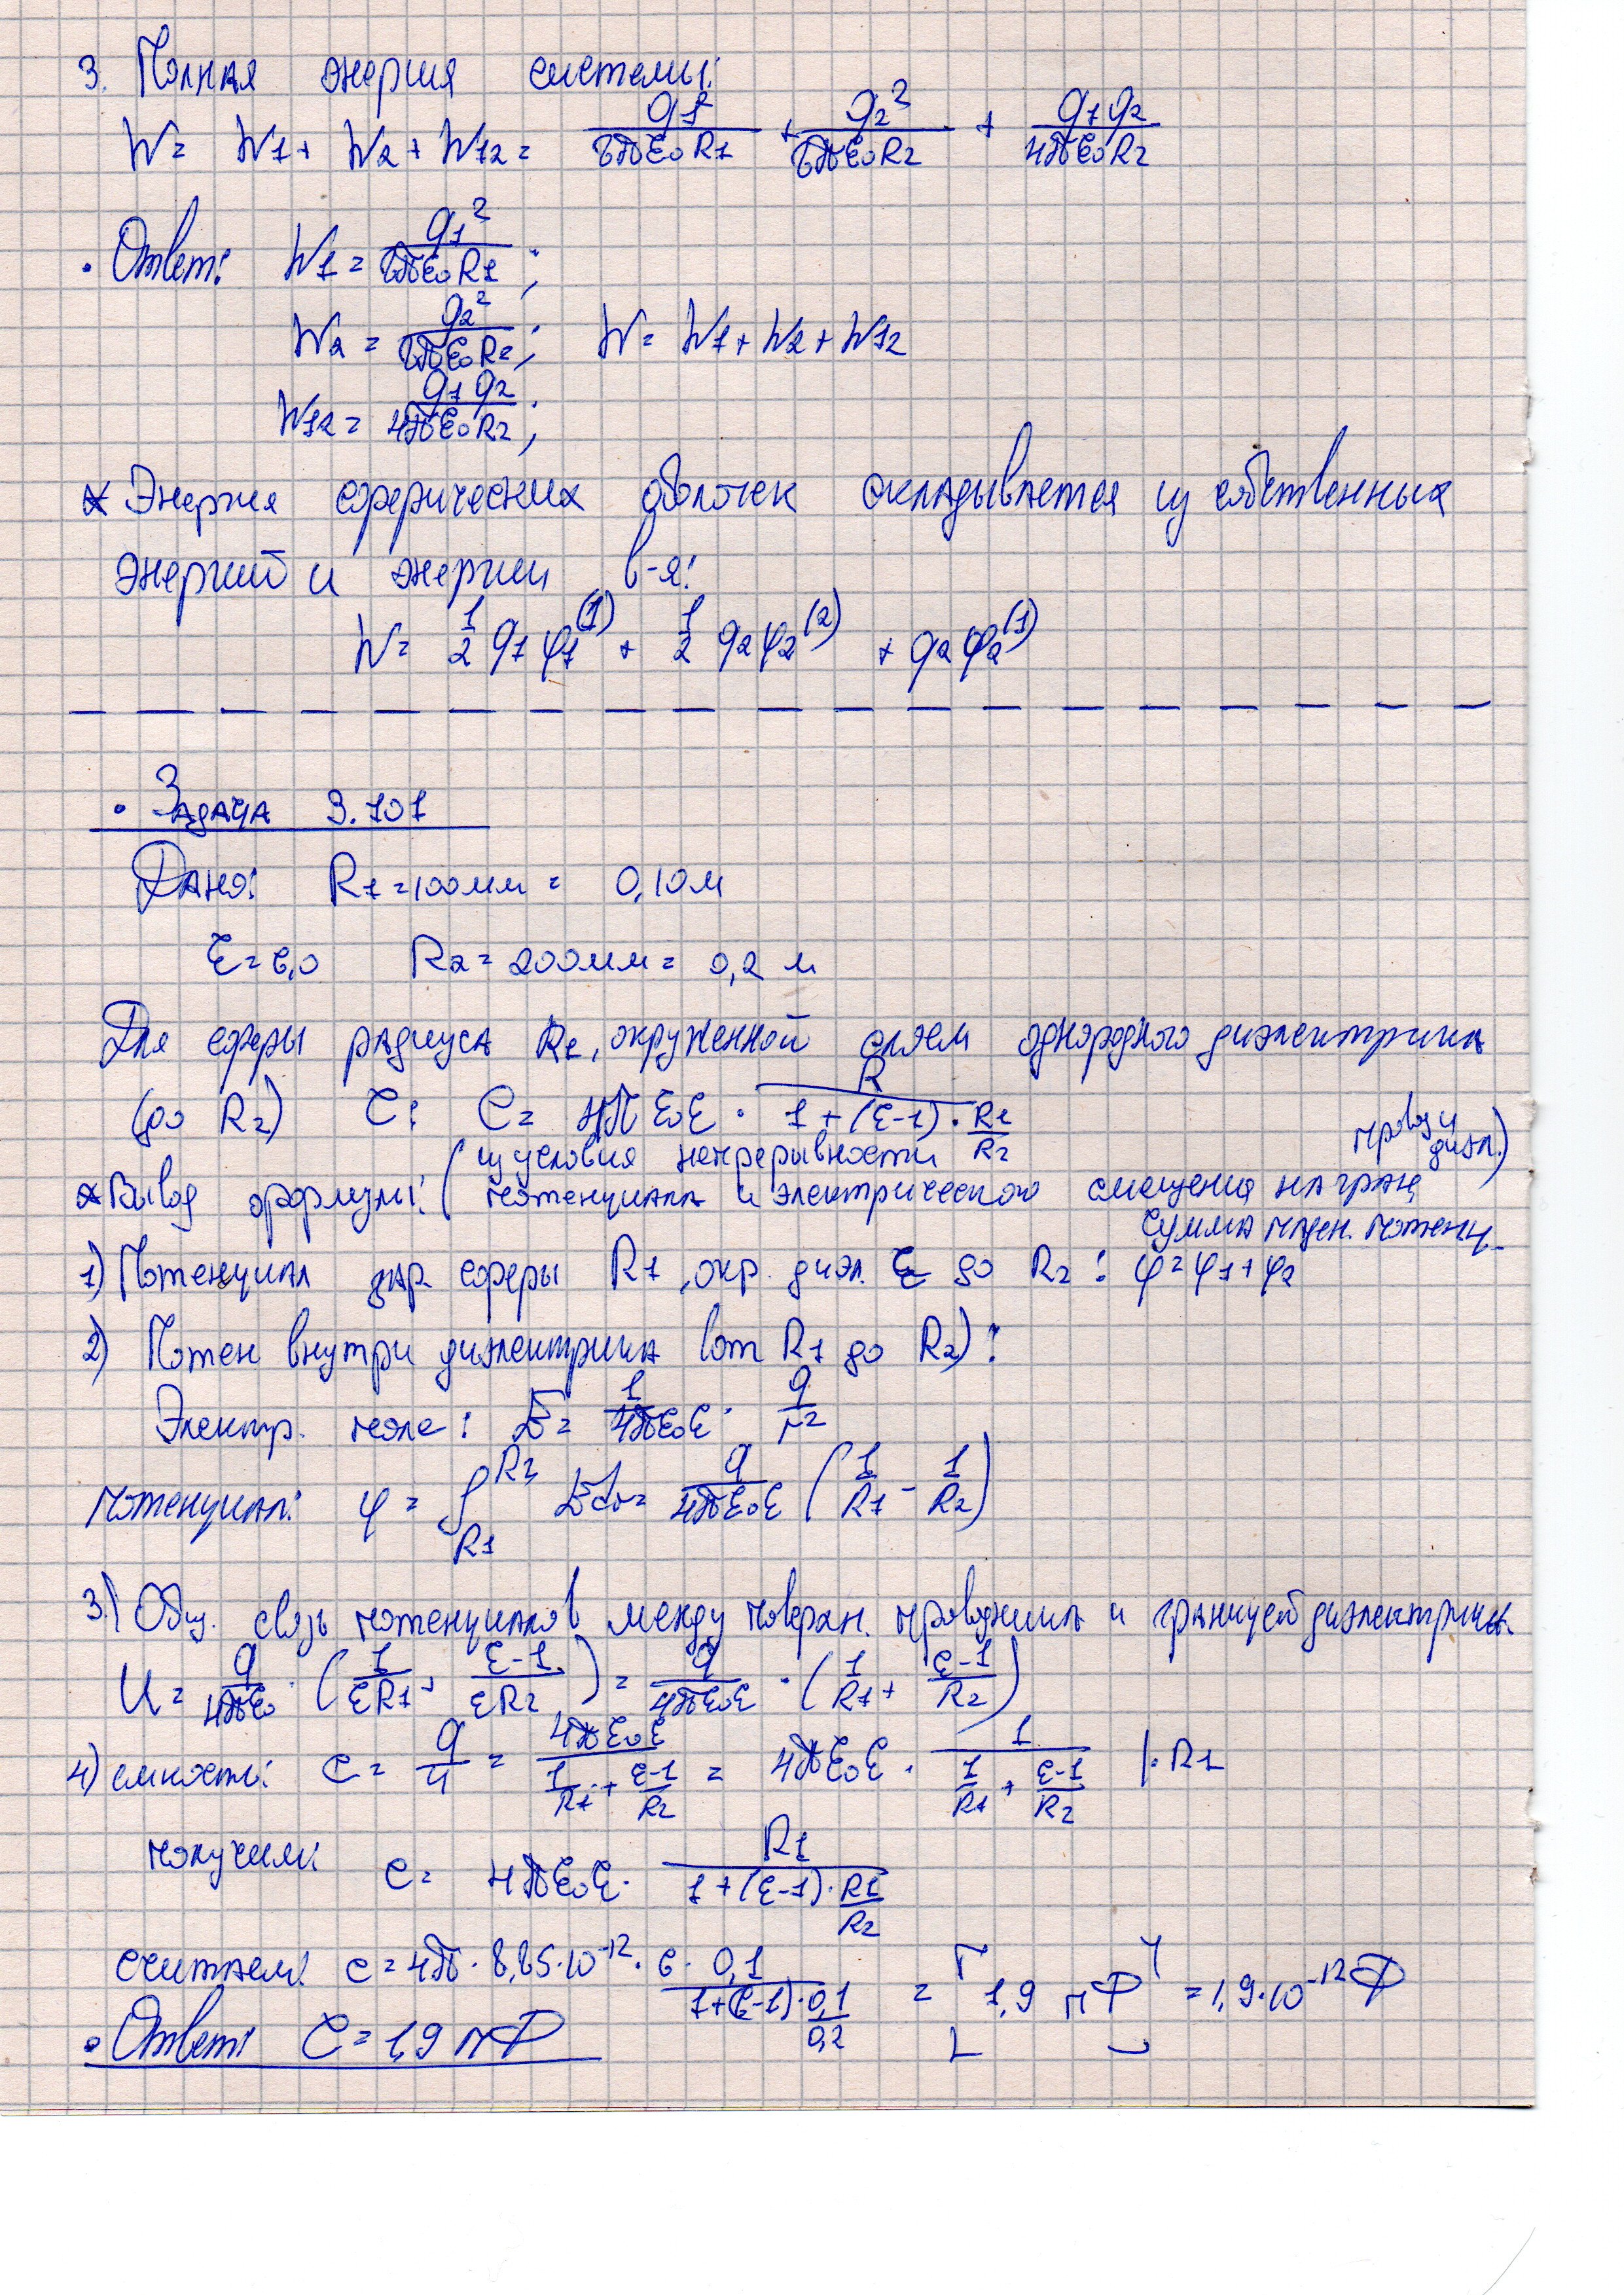 3. Полная энергия системы:
W = W1 + W2 + W12 = q1²/8πε₀R1 + q2²/8πε₀R2 + q1q2/4πε₀R2
• Ответ: W1 = q1²/8πε₀R1;
W2 = q2²/8πε₀R2; W = W1 + W2 + W12
W12 = q1q2/4πε₀R2;
* Энергия сферических оболочек складывается из собственных
энергий и энергии в-я:
W = 1/2 q1φ1⁽¹⁾ + 1/2 q2φ2⁽²⁾ + q2φ2⁽¹⁾
• Задача 3.101
Дано: R1 = 100мм = 0,10м
ε = 6,0 R2 = 200мм = 0,2 м
Для сферы радиуса R1, окруженной слоем однородного диэлектрика
(до R2) C: C = 4πε₀ε · R/(1 + (ε-1) · R1/R2)
* Вывод формулы: (из условия непрерывности потенциала и электрического смещения на гран. провод и диэл.)
1) Потенциал зар. сферы R1, окр. диэл. ε до R2: φ = φ1 + φ2
сумма паден. потенц.
2) Потен внутри диэлектрика (от R1 до R2):
Электр. поле: E = 1/4πε₀ε · q/r²
потенциал: φ = ∫R1^R2 Edr = q/4πε₀ε (1/R1 - 1/R2)
3) Общ. связь потенциалов между поверхн. проводника и границей диэлектрика.
U = q/4πε₀ · (1/εR1 + ε-1/εR2) = q/4πε₀ε · (1/R1 + ε-1/R2)
4) емкость: C = q/U = 4πε₀ε/(1/R1 + ε-1/R2) = 4πε₀ε · 1/(1/R1 + ε-1/R2) |·R1
получим: C = 4πε₀ε · R1/(1 + (ε-1) · R1/R2)
считаем: C = 4π · 8,85·10⁻¹² · 6 · 0,1/(1+(6-1)·0,1/0,2) = [1,9 пФ] = 1,9·10⁻¹² Ф
• Ответ: C = 1,9 пФ